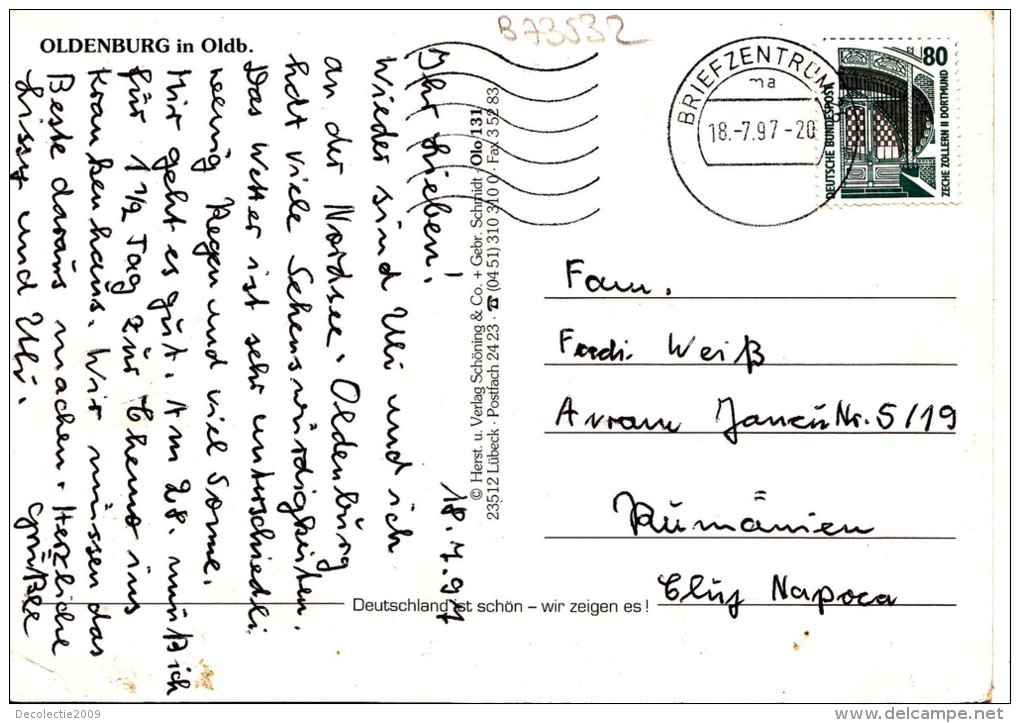 OLDENBURG in Oldb.
B 73532
Ihr Lieben!
18.7.97
Wieder sind Uli und ich
an der Nordsee. Oldenburg
hat viele Sehenswürdigkeiten.
Das Wetter ist sehr unterschiedli.
wenig Regen und viel Sonne.
Mir geht es gut. Am 28. muß ich
für 1 1/2 Tag zur Chemo ins
Krankenhaus. Wir müssen das
Beste daraus machen. Herzliche
Grüße
und Uli.
© Herst. u. Verlag Schöning & Co. + Gebr. Schmidt · Olo/131
23512 Lübeck · Postfach 24 23 · ☎ (04 51) 310 310 0 · Fax 3 52 83
BRIEFZENTRUM
ma
18.-7.97-20
80
DEUTSCHE BUNDESPOST
ZECHE ZOLLERN II DORTMUND
Fam.
Ferdi. Weiß
Avram Jancu Nr. 5/19
Rumänien
Cluj Napoca
Deutschland ist schön – wir zeigen es!
Decolectie2009
delcampe.net